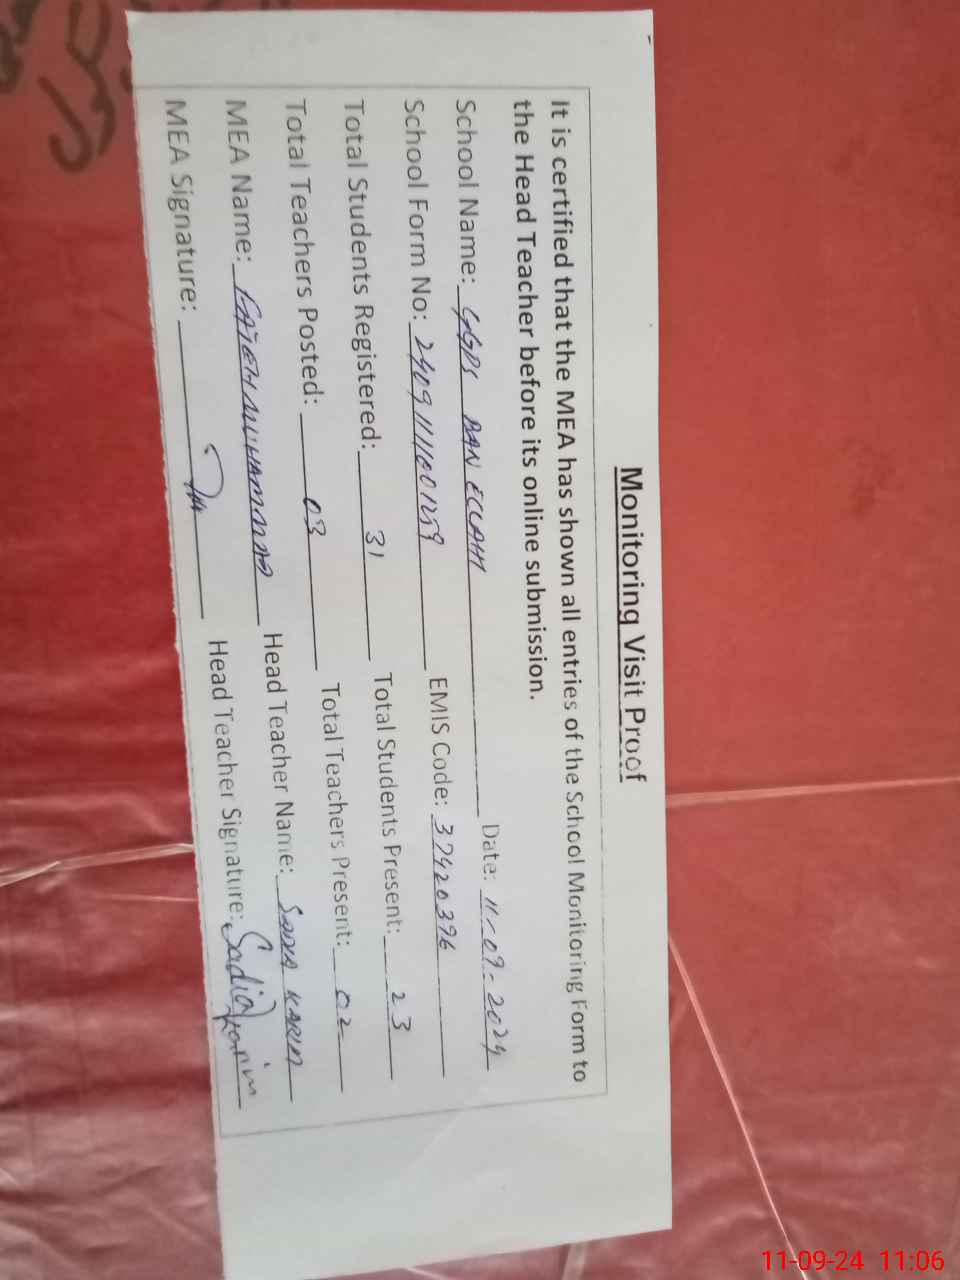 Monitoring Visit Proof
It is certified that the MEA has shown all entries of the School Monitoring Form to
the Head Teacher before its online submission.
School Name: GGPS Date: 11-09-2024
School Form No: EMIS Code: 37420396
Total Students Registered: 31 Total Students Present: 23
Total Teachers Posted: 03 Total Teachers Present: 02
MEA Name: FATEH MUHAMMAD Head Teacher Name: SADIA KARIM
MEA Signature: Head Teacher Signature: Sadia Karim
11-09-24 11:06